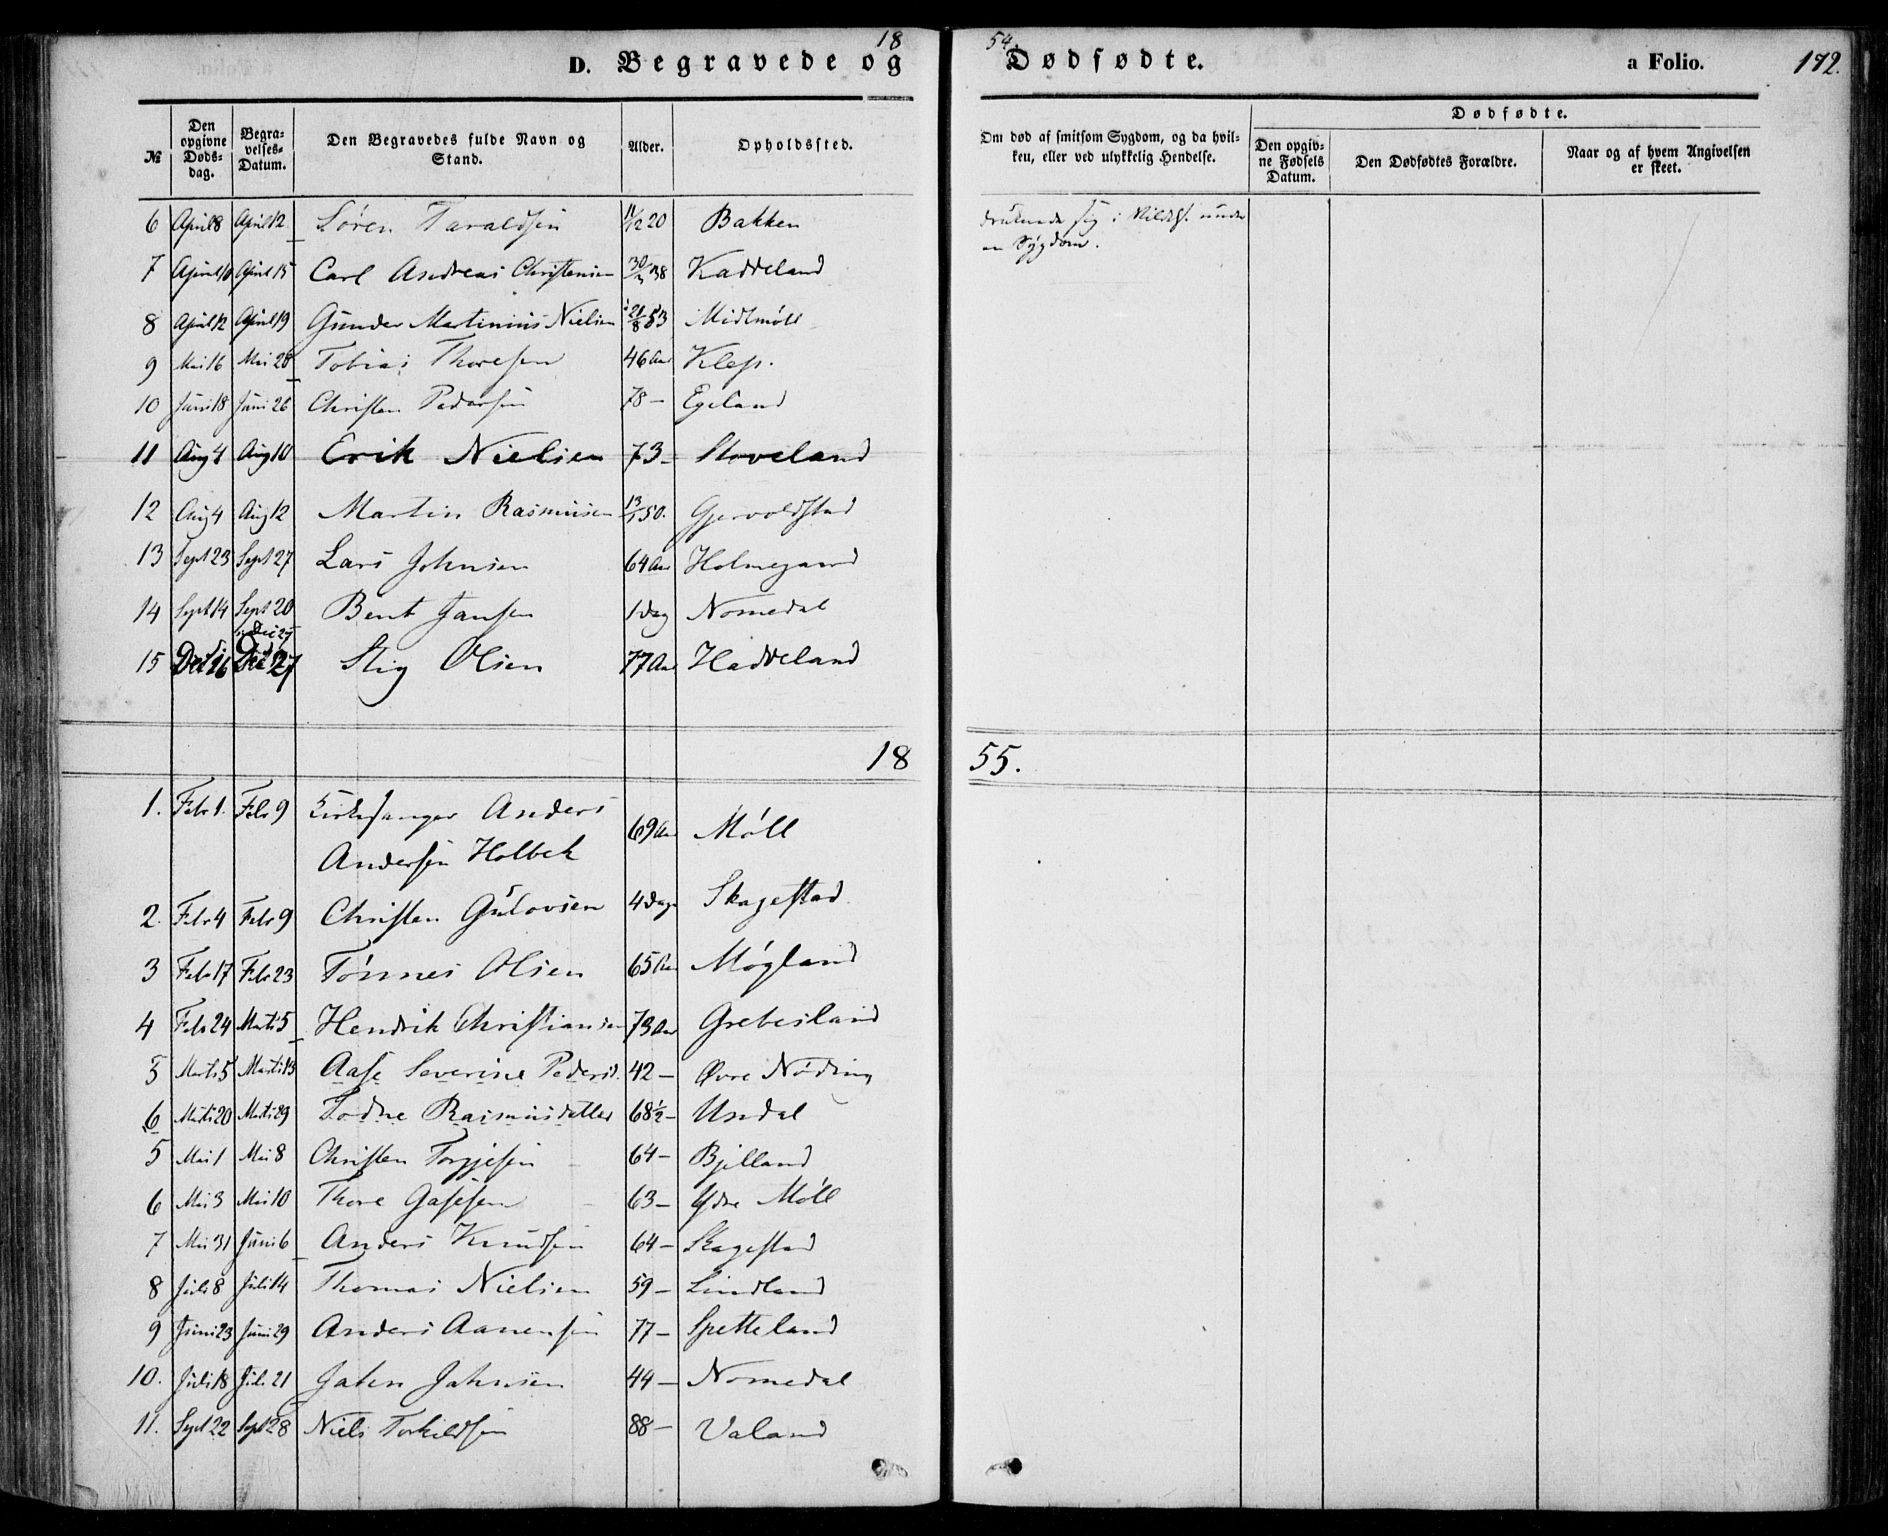 18 54.
D. Begravede og Dødfødte. a Folio. 172.
№ Den opgivne Døds-dag. Begra-velses-Datum. Den Begravedes fulde Navn og Stand. Alder. Opholdssted. Om død af smitsom Sygdom, og da hvil-ken, eller ved ulykkelig Hendelse. Dødfødte. Den opgiv-ne Fødsels Datum. Den Dødfødtes Forældre. Naar og af hvem Angivelsen er skeet.
6 April 8 April 12 Søren Taraldsen 11/12 20 Bakken sig i under
en Sygdom.
7 April 10 April 15 Carl Andreas Christensen 38 Kaddeland
8 April 12 April 19 Gunder Martinius Nielsen 21/8 53 Midtmøll
9 Mai 16 Mai 28 Tobias Thoresen 46 Aar Klep.
10 Juni 18 Juni 26 Christen Pedersen 78 — Egeland
11 Aug 4 Aug 10 Erik Nielsen 73 — Stoveland
12 Aug 4 Aug 12 Martin Rasmusen 13/1 50. Gjervoldstad
13 Sept 23 Sept 27 Lars Johnsen 64 Aar Holmegaard
14 Sept 14 Sept 20 Bent Jansen 1 Dag Nomedal
Dec 27
15 Dec 16 Dec 27 Stig Olsen 77 Aar Haddeland
18 55.
1. Febr 1. Febr 9 Kirkesanger Anders
Andersen Holbek 69 Aar Møll
2. Febr 4 Febr 9 Christen Gulovsen 4 Dage Skagestad
3 Febr 17 Febr 23 Tønnes Olsen 65 Aar Møgland
4 Febr 24 Marts 5 Hendrik Christiansen 73 Aar Grebesland
5 Marts 5 Marts 13 Aase Severine Pedersd. 42 — Øvre Nøding
6 Marts 20 Marts 29 Todne Rasmusdatter 68½ — Undal
5 Mai 1 Mai 8 Christen Torgjesen 64 — Bjelland
6 Mai 3 Mai 10 Thore Gasesen 63 — Ydre Møll
7 Mai 31 Juni 6 Anders Knudsen 64 — Skagestad
8 Juli 8 Juli 14 Thomas Nielsen 59 — Lindland
9 Juni 23 Juni 29 Anders Aanensen 77 — Spetteland
10. Juli 18 Juli 21 Jahn Johnsen 44 — Nomedal
11. Sept 22 Sept 28 Niels Torkildsen 88 — Valand